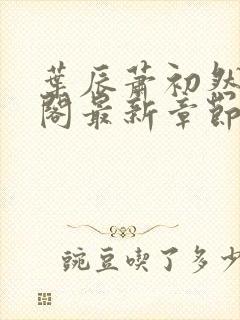 葉辰蕭初然
閣最新章節
豌豆喫了多少